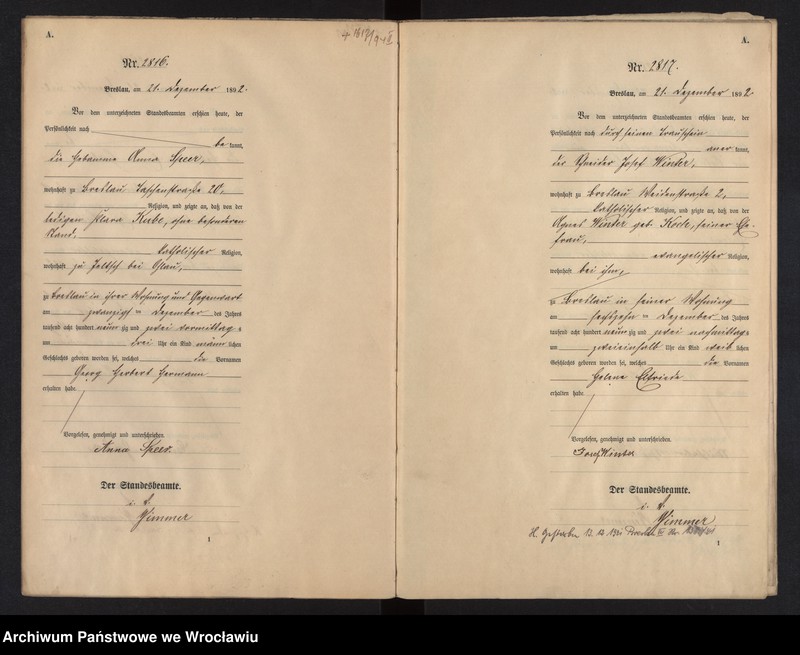 A.
Nr. 2816.
Breslau, am 21. Dezember 1892.
Vor dem unterzeichneten Standesbeamten erschien heute, der
Persönlichkeit nach
be kannt,
die Hebamme Anna Speer,
wohnhaft zu Breslau Taschenstraße 20,
Religion, und zeigte an, daß von der
ledigen Klara Kurbe, ohne besonderen
Stand,
katholischer Religion,
wohnhaft zu Jeltsch bei Ohlau,
zu Breslau in ihrer Wohnung und Gegenwart
am zwanzigsten Dezember des Jahres
tausend acht hundert neun zig und zwei vormittags
um drei Uhr ein Kind männ lichen
Geschlechts geboren worden sei, welches die Vornamen
Georg Herbert Hermann
erhalten habe.
Vorgelesen, genehmigt und unterschrieben.
Anna Speer.
Der Standesbeamte.
i. V.
Zimmer
1
A.
Nr. 2817.
Breslau, am 21. Dezember 1892.
Vor dem unterzeichneten Standesbeamten erschien heute, der
Persönlichkeit nach durch seinen Trauschein
aner kannt,
der Schneider Josef Winter,
wohnhaft zu Breslau Weidenstraße 2,
katholischer Religion, und zeigte an, daß von der
Agnes Winter geb. Koch, seiner Ehe-
frau,
evangelischer Religion,
wohnhaft bei ihm,
zu Breslau in seiner Wohnung
am sechszehn ten Dezember des Jahres
tausend acht hundert neun zig und zwei nachmittags
um zweieinhalb Uhr ein Kind weib lichen
Geschlechts geboren worden sei, welches die Vornamen
Helene Elfriede
erhalten habe.
Vorgelesen, genehmigt und unterschrieben.
Josef Winter
Der Standesbeamte.
i. V.
Zimmer
H. Gestorben 12. 12 Breslau III Nr.
1
Archiwum Państwowe we Wrocławiu